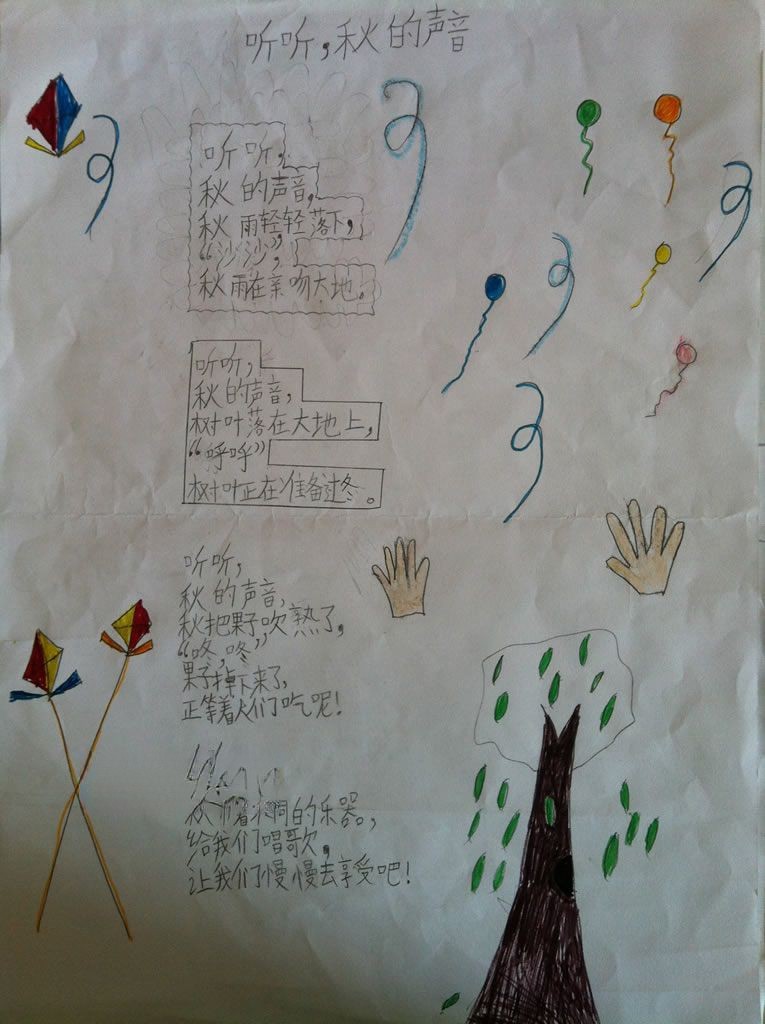 听听，秋的声音
听听，
秋的声音，
秋雨轻轻落下，
“沙沙”，
秋雨在亲吻大地。
听听，
秋的声音，
树叶落在大地上，
“呼呼”
树叶正在准备过冬。
听听，
秋的声音，
秋把果子吹熟了，
“咚，咚”，
果子掉下来了，
正等着人们吃呢！
秋 的乐器。，
给我们唱歌，
让我们慢慢去享受吧！